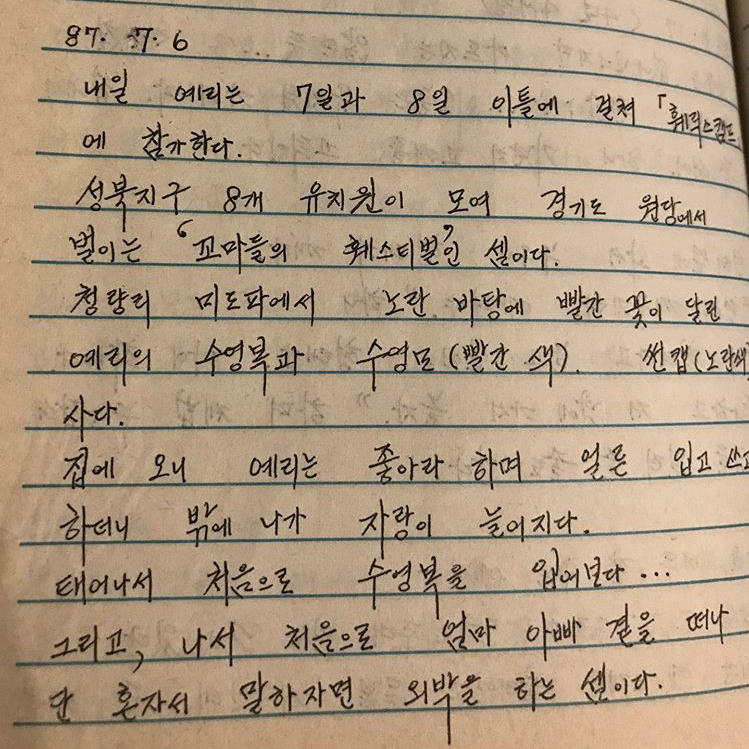 87. 7. 6
내일 예리는 7일과 8일 이틀에 걸쳐 「훼릭스캠프
에 참가한다.
성북지구 8개 유치원이 모여 경기도 원당에서
벌이는 “꼬마들의 훼스티벌”인 셈이다.
청량리 미도파에서 노란 바탕에 빨간 꽃이 달린
예리의 수영복과 수영모(빨간 색). 썬캡(노란색)
사다.
집에 오니 예리는 좋아라 하며 얼른 입고 쓰고
하더니 밖에 나가 자랑이 늘어지다.
태어나서 처음으로 수영복을 입어보다...
그리고, 나서 처음으로 엄마 아빠 곁을 떠나
단 혼자서 말하자면 외박을 하는 셈이다.